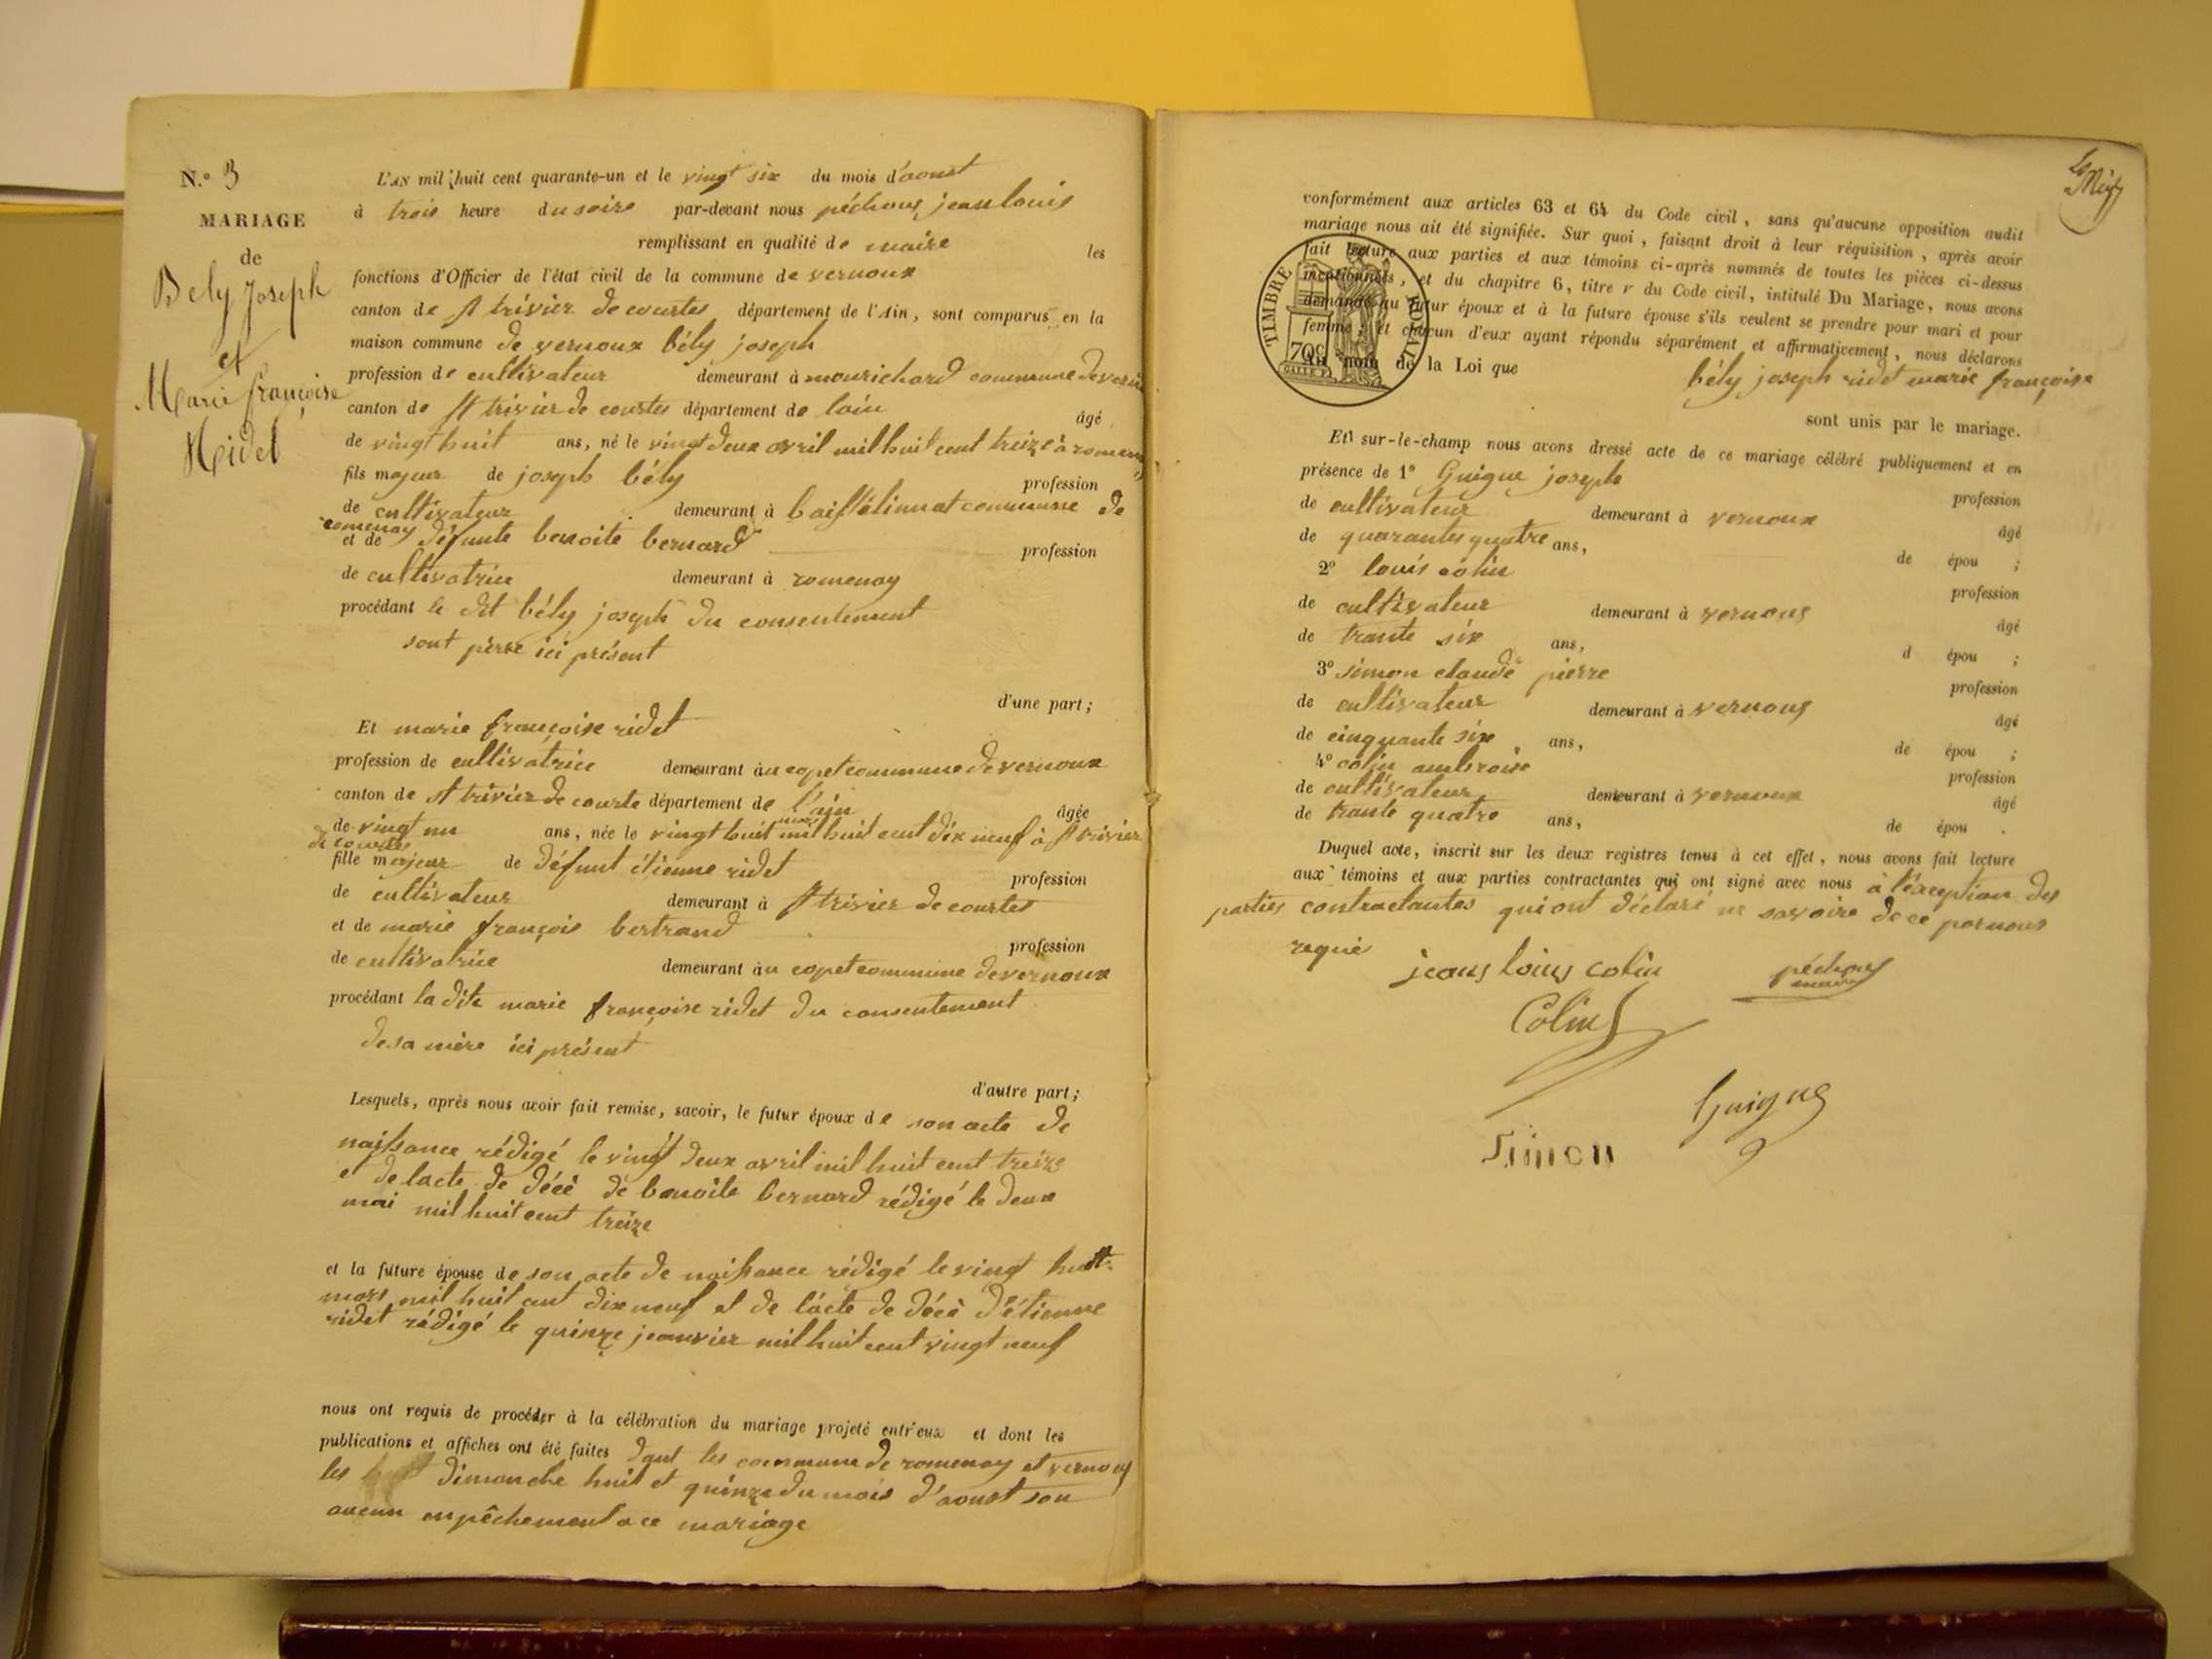 N.º 3
MARIAGE
de
Bely Joseph
et
Marie françoise
Ridet
L'AN mil huit cent quarante-un et le vingt six du mois d'aoust
à trois heure du soire par-devant nous péchoux jean louis
remplissant en qualité de maire les
fonctions d'Officier de l'état civil de la commune de vernoux
canton de St trivier de courtes département de l'Ain, sont comparus en la
maison commune de vernoux bély joseph
profession de cultivateur demeurant à mourichard commune de vernoux
canton de St trivier de courtes département de lain âgé
de vingt huit ans, né le vingt deux avril mil huit cent treize à romenay
fils majeur de joseph bély profession
de cultivateur demeurant à commune de
romenay
et de défunte benoite bernard profession
de cultivatrice demeurant à romenay
procédant le dit bély joseph du consentement
sont père ici présent
d'une part;
Et marie françoise ridet
profession de cultivatrice demeurant au copet commune de vernoux
canton de St trivier de courte département de l'ain âgée
de vingt un ans, née le vingt huit mars mil huit cent dix neuf à St trivier
de courtes
fille majeur de défunt étienne ridet profession
de cultivateur demeurant à St trivier de courtes
et de marie françois bertrand profession
de cultivatrice demeurant au copet commune de vernoux
procédant la dite marie françoise ridet du consentement
de sa mère ici présent
d'autre part;
Lesquels, après nous avoir fait remise, savoir, le futur époux de son acte de
naissance rédigé le vingt deux avril mil huit cent treize
et de lacte de décè de benoite bernard rédigé le deux
mai mil huit cent treize
et la future épouse de son acte de naissance rédigé le vingt huit
mars mil huit cent dix neuf et de l'acte de décè d'étienne
ridet rédigé le quinze jeanvier mil huit cent vingt neuf
nous ont requis de procéder à la célébration du mariage projeté entr'eux et dont les
publications et affiches ont été faites dant les commune de romenay et vernoux
les dimanche huit et quinze du mois d'aoust son
aucun enpêchement a ce mariage
conformément aux articles 63 et 64 du Code civil, sans qu'aucune opposition audit
mariage nous ait été signifiée. Sur quoi, faisant droit à leur réquisition, après avoir
fait lecture aux parties et aux témoins ci-après nommés de toutes les pièces ci-dessus
mentionnées, et du chapitre 6, titre v du Code civil, intitulé Du Mariage, nous avons
demandé au futur époux et à la future épouse s'ils veulent se prendre pour mari et pour
femme; et chacun d'eux ayant répondu séparément et affirmativement, nous déclarons
au nom de la Loi que bély joseph ridet marie françoise
TIMBRE ROYAL
70c
sont unis par le mariage.
Et sur-le-champ nous avons dressé acte de ce mariage célébré publiquement et en
présence de 1º Guigue joseph profession
de cultivateur demeurant à vernoux âgé
de quarantes quatre ans, de épou ;
2º louis colin profession
de cultivateur demeurant à vernoux âgé
de trante six ans, d épou ;
3º simon claude pierre profession
de cultivateur demeurant à vernoux âgé
de cinquante six ans, de épou ;
4º colin ambroise profession
de cultivateur demeurant à vernoux âgé
de trante quatre ans, de épou .
Duquel acte, inscrit sur les deux registres tenus à cet effet, nous avons fait lecture
aux témoins et aux parties contractantes qui ont signé avec nous à l'éxception des
parties contractantes qui ont déclaré ne savoire de ce par nous
requie
jeans louis colin péchoux
maire
Colin
Guigue
Simon